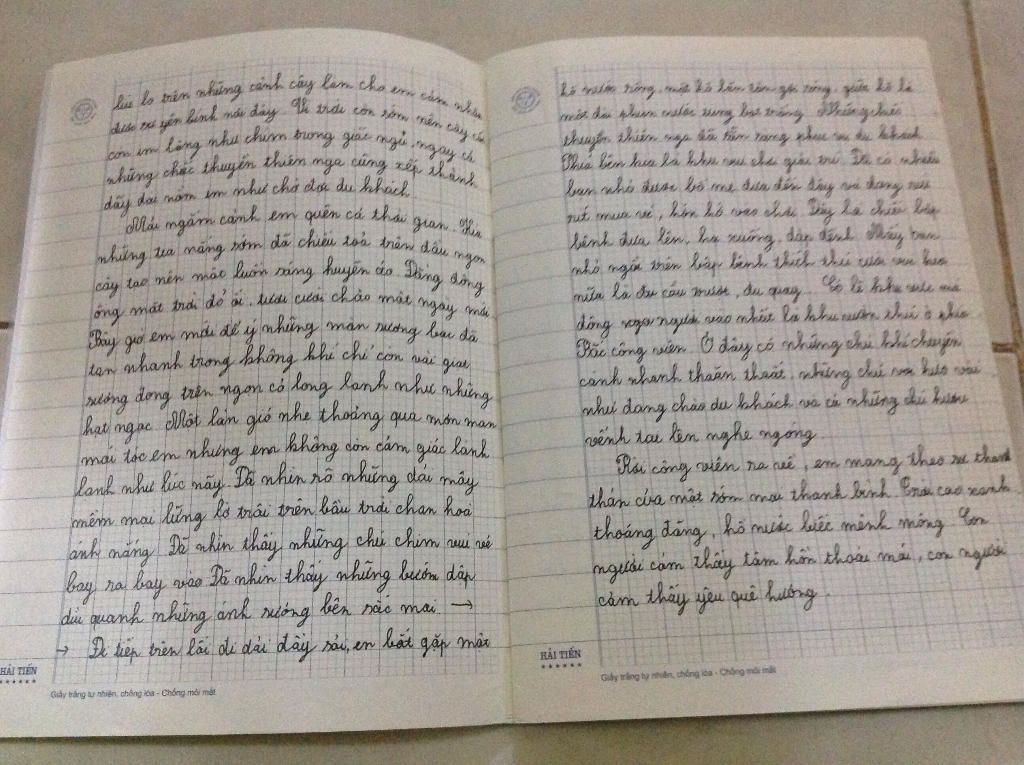 líu lo trên những cành cây làm cho em cảm nhận
được sự yên bình nơi đây. Vì trời còn sớm nên cây cối
con im lặng như chìm trong giấc ngủ, ngay cả
những chiếc thuyền thiên nga cũng xếp thành
dãy dài nằm im như chờ đợi du khách.
Mải ngắm cảnh em quên cả thời gian. Kìa
những tia nắng sớm đã chiếu toả trên đầu ngọn
cây tạo nên một luồn sáng huyền ảo. Đằng đông
ông mặt trời đỏ ối, tươi cười chào một ngày mới.
Bây giờ em mới để ý những màn sương bạc đã
tan nhanh trong không khí chỉ còn vài giọt
sương đọng trên ngọn cỏ long lanh như những
hạt ngọc. Một làn gió nhẹ thoảng qua mơn man
mái tóc em nhưng em không còn cảm giác lành
lạnh như lúc nãy. Đã nhìn rõ những dải mây
mềm mại lững lờ trôi trên bầu trời chan hoà
ánh nắng. Đã nhìn thấy những chú chim vui vẻ
bay ra bay vào. Đã nhìn thấy những bướm dập
dìu quanh những ánh sương bên sắc mai →
→ Đi tiếp trên lối đi dải đầy sỏi, em bắt gặp một
HẢI TIẾN
Giấy trắng tự nhiên, chống lóa - Chống mỏi mắt
hồ nước rộng, mặt hồ lăn tăn gợi sóng, giữa hồ là
một đài phun nước tung bọt trắng. Những chiếc
thuyền thiên nga đã sẵn sàng phục vụ du khách.
Phía bên kia là khu vui chơi giải trí. Đã có nhiều
bạn nhỏ được bố mẹ đưa đến đây và đang
rít mua vé, hớn hở vào chơi. Đây là chiếc bập
bênh đưa lên, hạ xuống, dập dềnh. Mấy bạn
nhỏ ngồi trên bập bênh thích thú cười
nữa là đu cầu trượt, đu quay. Có lẽ khu vực mà
đông người vào nhất là khu vườn thú ở phía
Bắc công viên. Ở đây có những chú khỉ chuyền
cành nhanh thoăn thoắt, những chú voi huơ vòi
như đang chào du khách và cả những chú hươu
vểnh tai lên nghe ngóng.
Rời công viên ra về, em mang theo sự thanh
thản của một sớm mai thanh bình. Trời cao xanh
thoáng đãng, hồ nước biếc mênh mông. Con
người cảm thấy tâm hồn thoải mái, con người
cảm thấy yêu quê hương.
HẢI TIẾN
Giấy trắng tự nhiên, chống lóa - Chống mỏi mắt